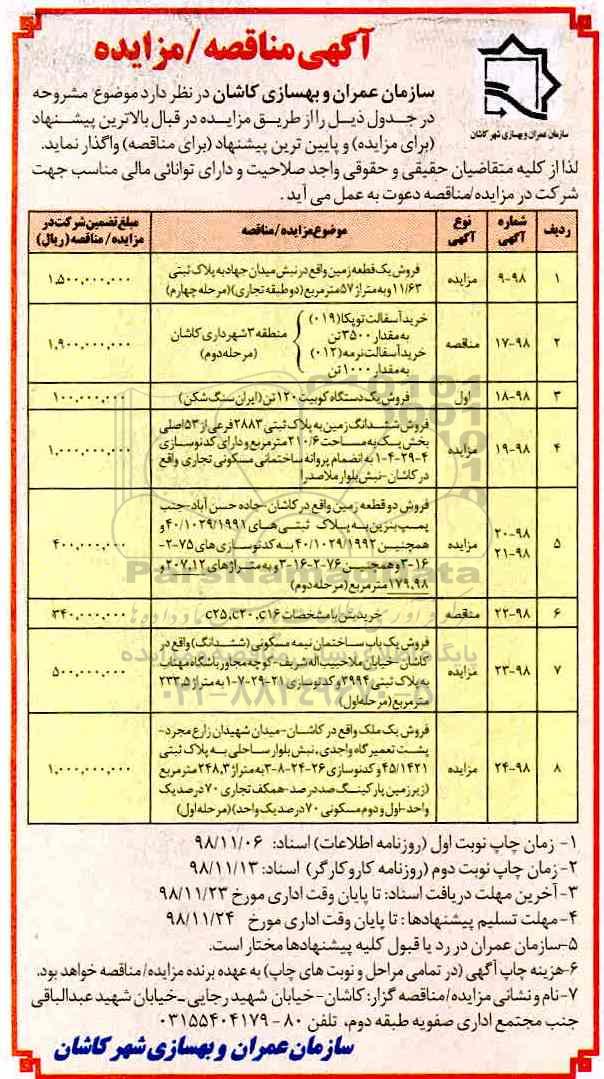 آگهی مناقصه/مزایده
سازمان عمران و بهسازی شهر کاشان
سازمان عمران و بهسازی کاشان در نظر دارد موضوع مشروحه
در جدول ذیل را از طریق مزایده در قبال بالاترین پیشنهاد
(برای مزایده) و پایین ترین پیشنهاد (برای مناقصه) واگذار نماید.
لذا از کلیه متقاضیان حقیقی و حقوقی واجد صلاحیت و دارای توانائی مالی مناسب جهت
شرکت در مزایده/مناقصه دعوت به عمل می آید.
ردیف شماره آگهی نوع آگهی موضوع مزایده/مناقصه مبلغ تضمین شرکت در مزایده/مناقصه (ریال)
۱ ۹-۹۸ مزایده فروش یک قطعه زمین واقع در نبش میدان جهاد به پلاک ثبتی ۱,۵۰۰,۰۰۰,۰۰۰
۱۱/۶۳ و به متراژ ۵۷ مترمربع (دو طبقه تجاری)(مرحله چهارم)
۲ ۱۷-۹۸ مناقصه خرید آسفالت توپکا (۰۱۹) ۱,۹۰۰,۰۰۰,۰۰۰
به مقدار ۳۵۰۰ تن
خرید آسفالت نرمه (۰۱۲)
به مقدار ۱۰۰۰ تن
منطقه ۳ شهرداری کاشان
(مرحله دوم)
۳ ۱۸-۹۸ اول فروش یک دستگاه کوبیت ۱۲۰ تن (ایران سنگ شکن) ۱۰۰,۰۰۰,۰۰۰
۴ ۱۹-۹۸ مزایده فروش ششدانگ زمین به پلاک ثبتی ۲۸۸۳ فرعی از ۵۳ اصلی ۱,۰۰۰,۰۰۰,۰۰۰
بخش یک به مساحت ۲۱۰/۶ مترمربع و دارای کد نوسازی
۴-۲۹-۴-۱ به انضمام پروانه ساختمانی مسکونی تجاری واقع
در کاشان-نبش بلوار ملاصدرا
۵ ۲۰-۹۸ ۲۱-۹۸ مزایده فروش دو قطعه زمین واقع در کاشان-جاده حسن آباد-جنب ۴۰۰,۰۰۰,۰۰۰
پمپ بنزین به پلاک ثبتی های ۴۰/۱۰۲۹/۱۹۹۱ و
همچنین ۴۰/۱۰۲۹/۱۹۹۲ به کد نوسازی های ۷۵-۲-
۱۶-۳ و همچنین ۷۶-۲-۱۶-۳ و به متراژهای ۲۰۷,۱۲ و
۱۷۹,۹۸ مترمربع (مرحله دوم)
۶ ۲۲-۹۸ مناقصه خرید بتن با مشخصات C۲۵,C۲۰,C۱۶ ۳۴۰,۰۰۰,۰۰۰
۷ ۲۳-۹۸ مزایده فروش یک باب ساختمان نیمه مسکونی (ششدانگ) واقع در ۵۰۰,۰۰۰,۰۰۰
کاشان-خیابان ملاحبیب اله شریف-کوچه مجاور باشگاه مهتاب
به پلاک ثبتی ۳۹۹۴ و کد نوسازی ۲۱-۲۹-۷-۱ به متراژ ۲۳۳,۵
مترمربع (مرحله اول)
۸ ۲۴-۹۸ مزایده فروش یک ملک واقع در کاشان-میدان شهیدان زارع مجرد- ۱,۰۰۰,۰۰۰,۰۰۰
پشت تعمیرگاه واجدی، نبش بلوار ساحلی به پلاک ثبتی
۴۵/۱۴۲۱ و کد نوسازی ۲۶-۲۴-۸-۳ به متراژ ۲۴۸,۳ مترمربع
(زیرزمین پارکینگ صد درصد-همکف تجاری ۷۰ درصد یک
واحد-اول و دوم مسکونی ۷۰ درصد یک واحد)(مرحله اول)
۱- زمان چاپ نوبت اول (روزنامه اطلاعات) اسناد: ۹۸/۱۱/۰۶
۲-زمان چاپ نوبت دوم (روزنامه کار و کارگر) اسناد: ۹۸/۱۱/۱۳
۳-آخرین مهلت دریافت اسناد: تا پایان وقت اداری مورخ ۹۸/۱۱/۲۳
۴-مهلت تسلیم پیشنهادها: تا پایان وقت اداری مورخ ۹۸/۱۱/۲۴
۵-سازمان عمران در رد یا قبول کلیه پیشنهادها مختار است.
۶-هزینه چاپ آگهی (در تمامی مراحل و نوبت های چاپ) به عهده برنده مزایده/مناقصه خواهد بود.
۷-نام و نشانی مزایده/مناقصه گزار: کاشان-خیابان شهید رجایی-خیابان شهید عبدالباقی
جنب مجتمع اداری صفویه طبقه دوم، تلفن ۸۰-۰۳۱۵۵۴۰۴۱۷۹
سازمان عمران و بهسازی شهر کاشان
ParsNamadData